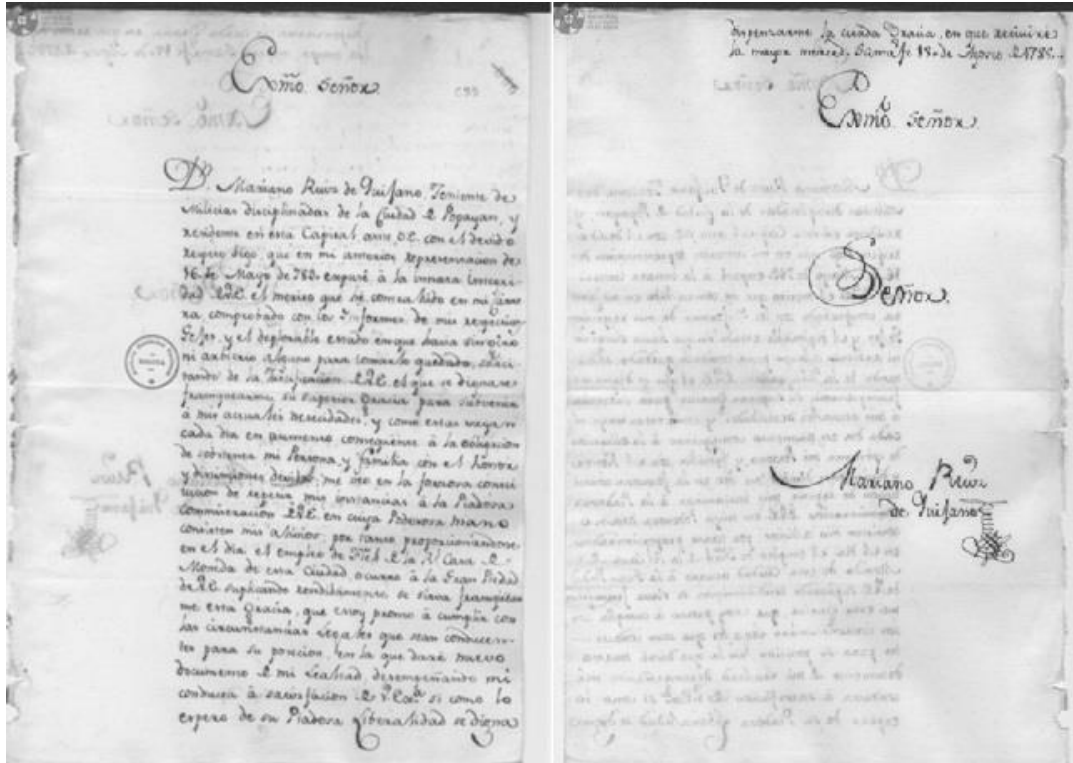 Exmô. Señor.
Dn. Mariano Ruiz de Quijano, Teniente de
Milicias disciplinadas de la Ciudad de Popayan, y
residente en esta Capital, ante V.E. con el devido
respeto digo, que en mi anterior representacion de
16 de Mayo de 785 expuse à la innata
dad de V.E. el merito que he contrahido en mi carre
ra, comprobado con los Informes de mis respectivos
Gefes, y el deplorable estado en que havia
ni arbitrio alguno para tomarlo quedado, solici-
tando de la Justificacion de V.E. el que se dignase
franquearme su superior Gracia para subvenir
à mis actuales necesidades, y como estas vayan
cada dia en aumento consiguiente à la obligacion
de sobstener mi Persona, y familia con el honor
y distinciones devidas, me veo en la forzosa consti
tucion de repetir mis instancias à la Piadosa
Conmiseracion de V.E. en cuya Poderosa mano
consisten mis alivios; por tanto proporcionandose
en el dia el empleo de Fiel de la Rl. Casa de
Moneda de esta Ciudad, ocurro à la Gran Piedad
de V.E. suplicando rendidamente se sirva franquear
me esta Gracia, que estoy pronto à cumplir con
las circunstancias legales que sean conducen-
tes para su posecion, en la que daré nuevo
documento de mi lealtad, desempeñando mi
conducta à satisfacion de V. Exa. si como lo
espero de su Piadosa Liberalidad se digna
dispensarme la citada Gracia, en que recivire
la mayor merced. Santafe 18 de Agosto de 1785.
Exmô. Señor.
Señor.
Mariano Ruiz
de Quijano